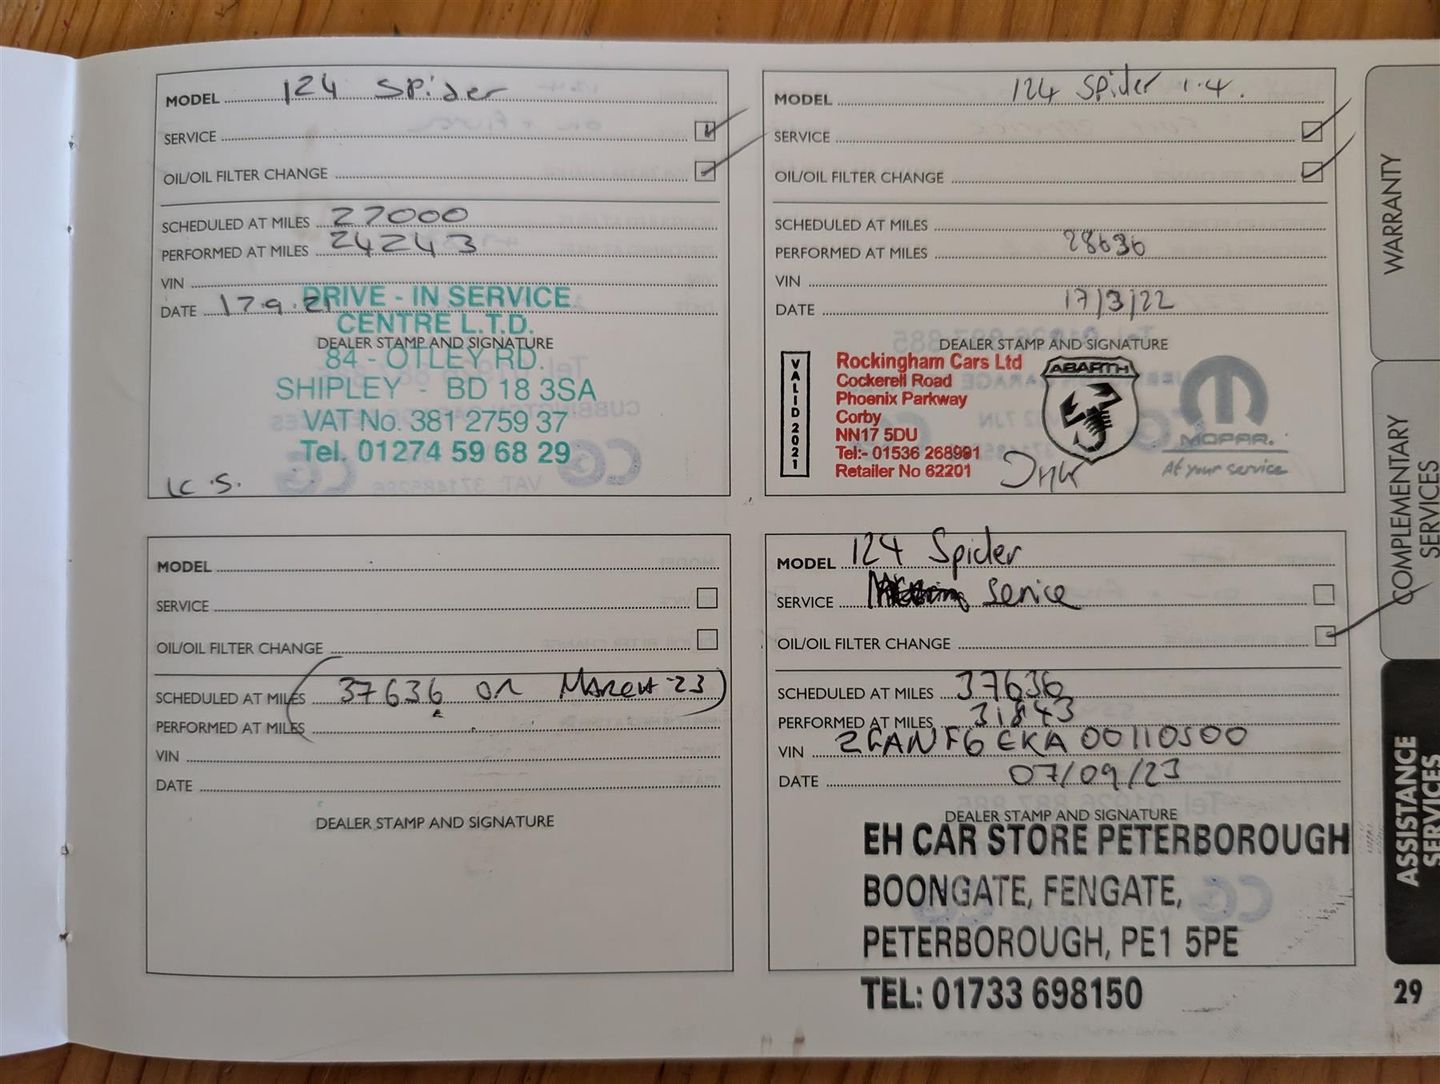 MODEL 124 Spider
SERVICE
OIL/OIL FILTER CHANGE
SCHEDULED AT MILES 27000
PERFORMED AT MILES 24243
VIN
DATE 17.9.21
DRIVE - IN SERVICE
CENTRE L.T.D.
DEALER STAMP AND SIGNATURE
84 - OTLEY RD.
SHIPLEY - BD 18 3SA
VAT No. 381 2759 37
Tel. 01274 59 68 29
K.S.
MODEL 124 Spider 1.4.
SERVICE
OIL/OIL FILTER CHANGE
SCHEDULED AT MILES
PERFORMED AT MILES 28636
VIN
DATE 17/3/22
DEALER STAMP AND SIGNATURE
VALID 2021
Rockingham Cars Ltd
Cockerell Road
Phoenix Parkway
Corby
NN17 5DU
Tel:- 01536 268991
Retailer No 62201
ABARTH
MOPAR.
At your service
MODEL
SERVICE
OIL/OIL FILTER CHANGE
SCHEDULED AT MILES 37636 or MARCH 23
PERFORMED AT MILES
VIN
DATE
DEALER STAMP AND SIGNATURE
MODEL 124 Spider
SERVICE Service
OIL/OIL FILTER CHANGE
SCHEDULED AT MILES 37636
PERFORMED AT MILES 31843
VIN ZFANF6EKA00110500
DATE 07/09/23
DEALER STAMP AND SIGNATURE
EH CAR STORE PETERBOROUGH
BOONGATE, FENGATE,
PETERBOROUGH, PE1 5PE
TEL: 01733 698150
WARRANTY
COMPLEMENTARY
SERVICES
ASSISTANCE
SERVICES
29